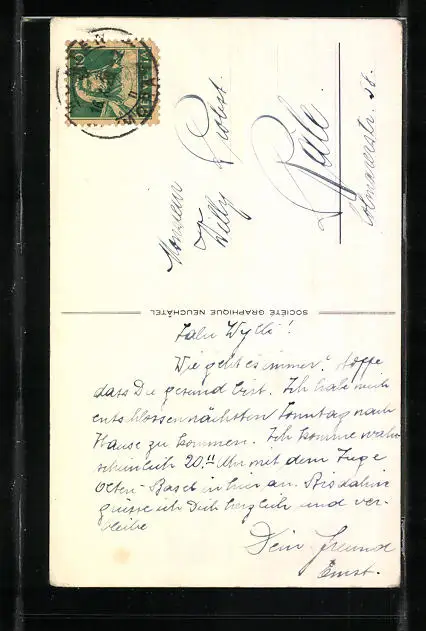 HELVETIA
Monsieur
Willy Probst.
Bâle.
Colmarerstr. 58.
SOCIÉTÉ GRAPHIQUE NEUCHÂTEL
Salu Wylli!
Wie geht es immer? Hoffe
dass Du gesund bist. Ich habe mich
entschlossen nächsten Sonntag nach
Hause zu kommen. Ich komme wahr
scheinlich 20.11 Uhr mit dem Zuge
Olten-Basel in hier an. Bis dahin
grüsse ich Dich herzlich und ver-
bleibe
Dein Freund
Ernst.